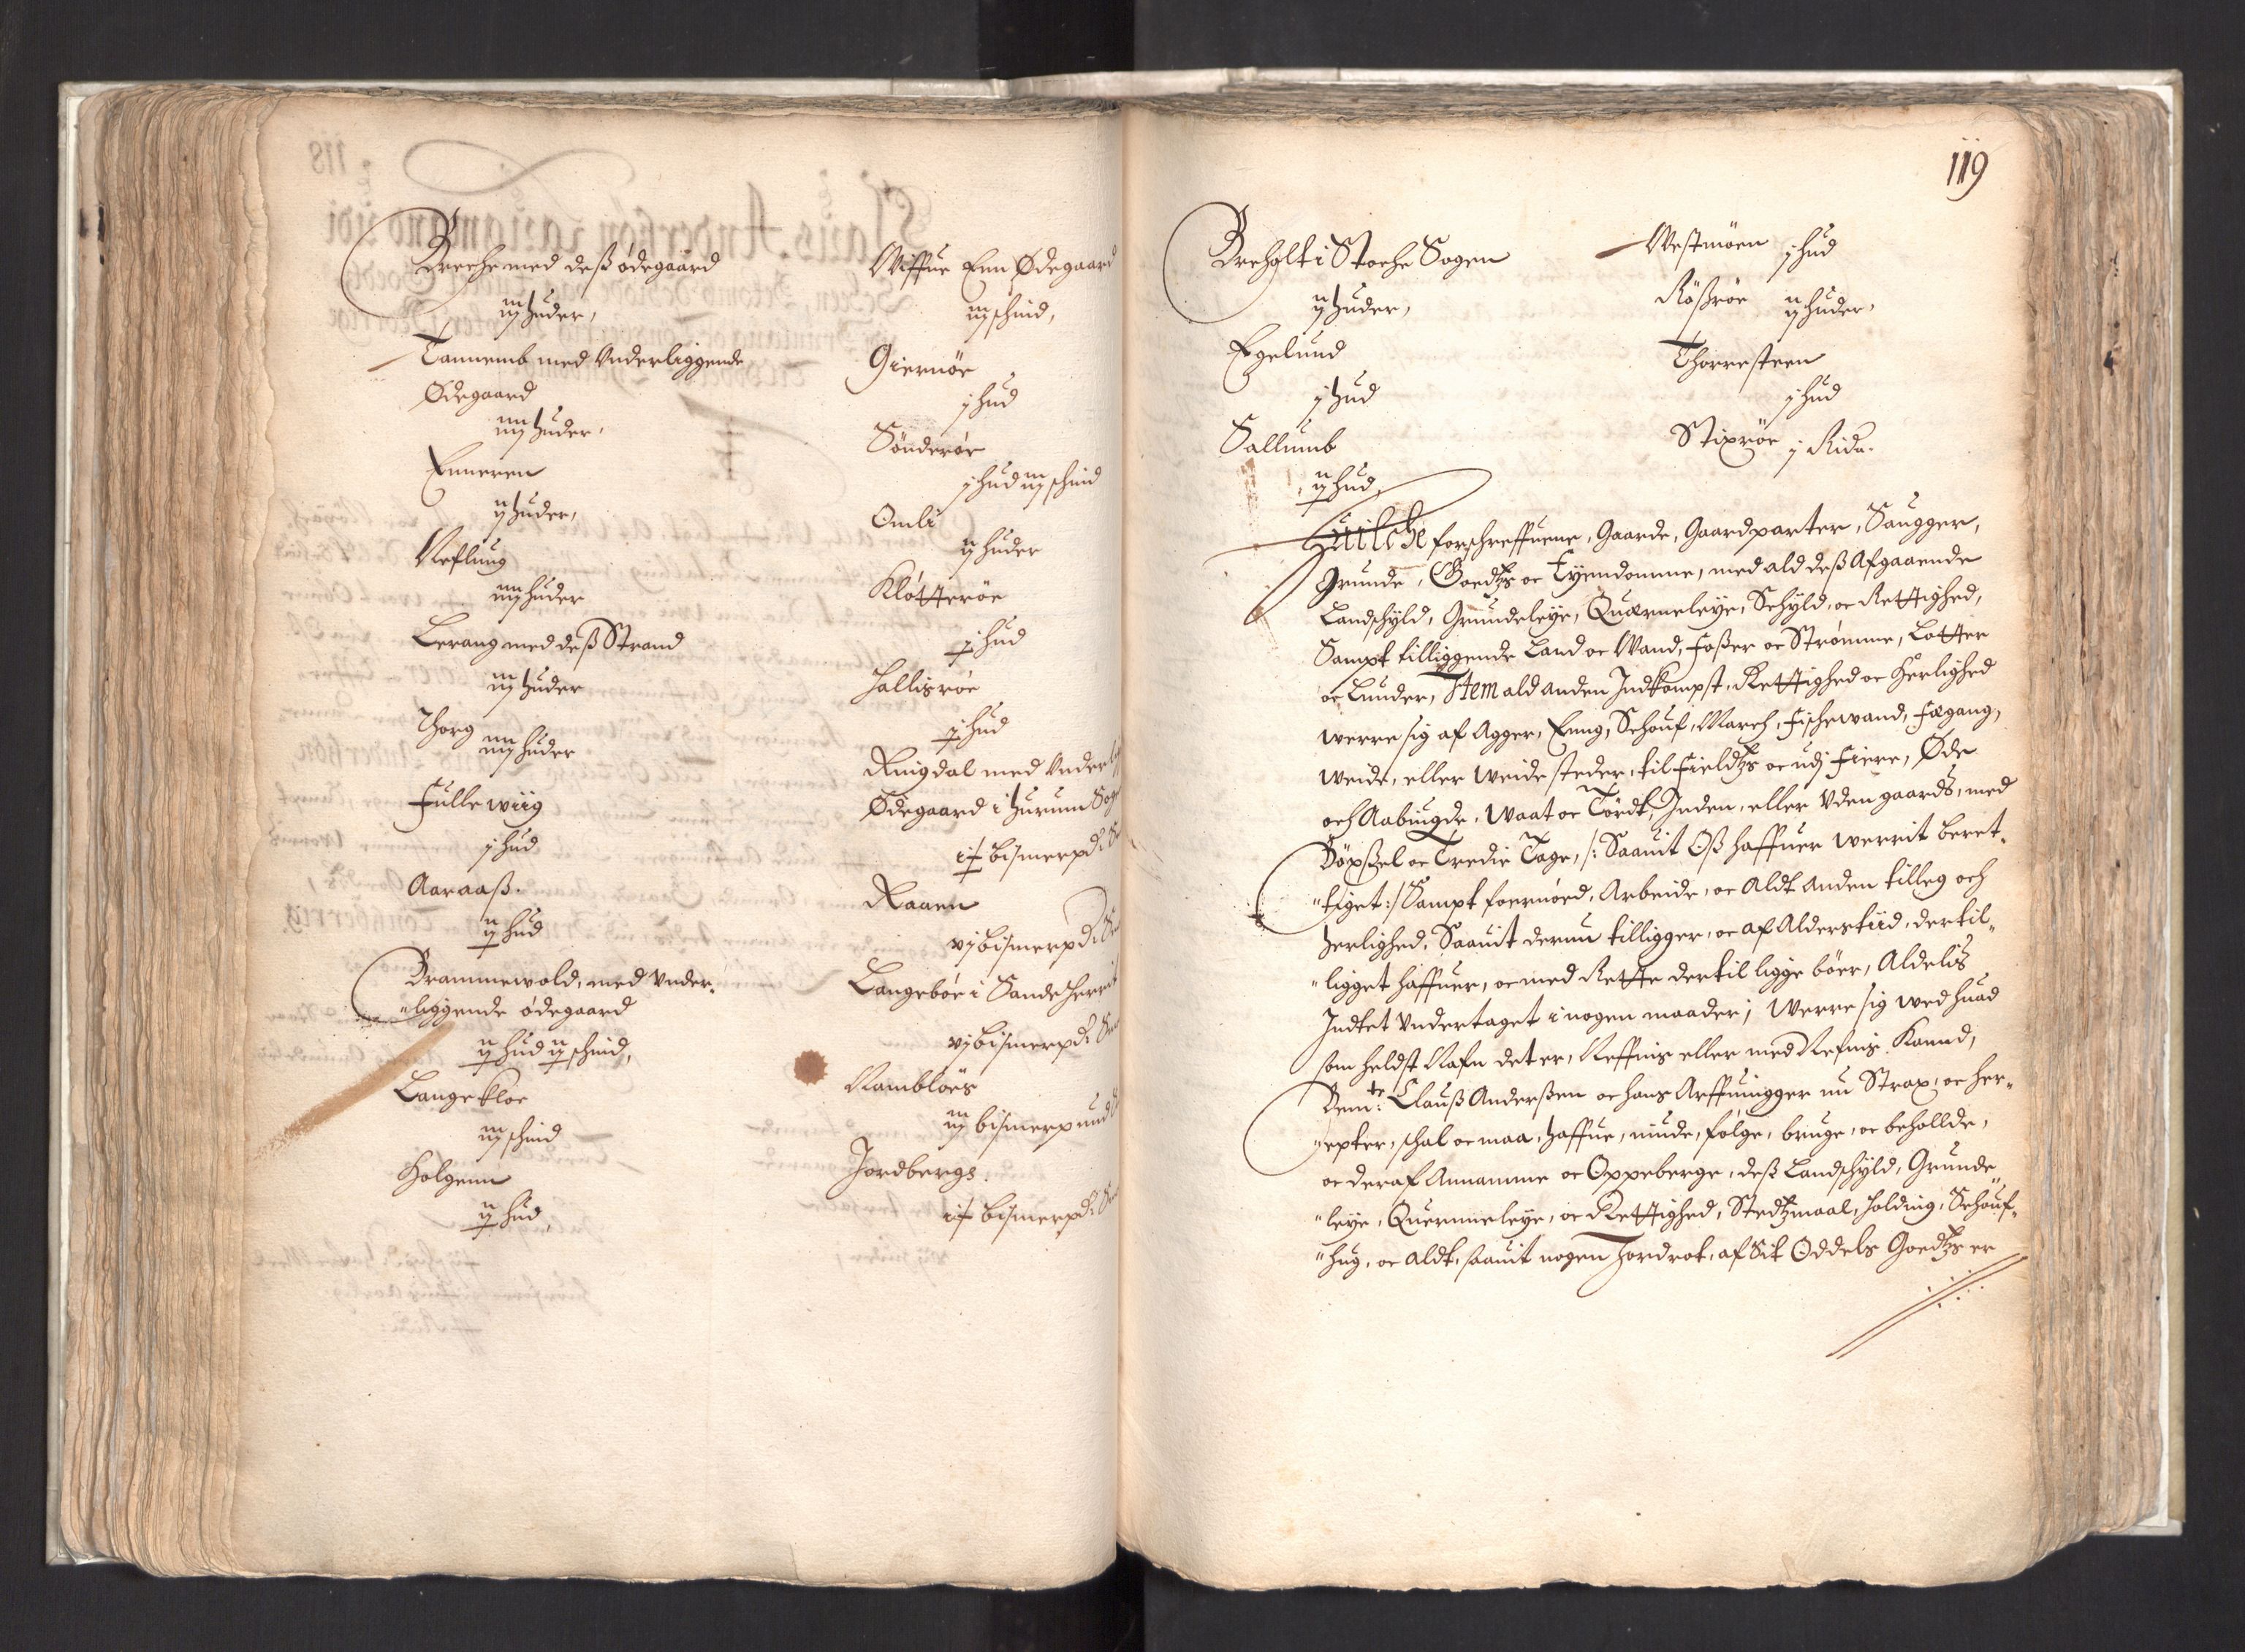 Breche med deß ødegaard
iij huder,
Tannemb med Underliggende
Ødegaard
iiij huder,
Enneren
ij huder,
Neflung
iiij huder
Lerang med deß Strand
iij huder
Thorg
iiij huder
Fullewiig
j hud
Aaraaß.
ij hud
Brammewold, med Under-
liggende ødegaard
ij hud ij schind,
Langekloe
iij schind
Holgenn
ij hud,
Wiffue Enn Ødegaard
iij schind,
Giernøe
j hud
Sønderøe
j hud iij schind
Omli
ij huder
Kløtterøe
j hud
Hallisrøe
j hud
Ringdal med Under
Ødegaard i Hurum Sog
bismerpd:
Raaen
vj bismerpd:
Langebøe i Sande Herrit
vj bismerpd:
Nambløes
iij bismerpund
Jordbergs.
bismerpd:
119
Breholt i Stoche Sogen
ij huder,
Egelund
j hud
Sallumb
ij hud,
Westmøen j hud
Røßrøe ij huder,
Thorresteen
j hud
Stixrøe j Rid.
Huilche forschreffuene, Gaarde, Gaardparter, Saugger,
Grunde, Goedtzs oc Eyendomme, med ald deß Afgaaende
Landschyld, Grundeleye, Quærneleye, Schyld, oc Rettighed,
Sampt tilliggende Land oc Wand, Foßer oc Strømme, Lotter
oc Lunder, Item ald anden Indkompst, Rettighed oc Herlighed
werre sig af Agger, Enng, Schouf, March, Fischewand, Fægang,
weide, eller weide steder, til Fieldtzs oc udj Fiere, Øde
och Aabugde, Waat oc Tørdt, Inden, eller Uden gaards, med
Bøxßel oc Tredie Tage, /: Saauit Oß haffuer werrit beret-
tiget :/ Sampt foernøed, Arbeide, oc Aldt anden tilleg och
herlighed, Saauit derunn tilligger, oc af Alderstiid, dertil-
ligget haffuer, oc med Rette dertil ligge bøer, Aldelis
Indtet Undertaget i nogen maader, Werre sig wed huad
som heldst Nafn det er, Neffnis eller med Nefnis Kannd,
Bem:te Clauß Anderßen oc hans Arffuingger nu Strax, oc her-
epter, schal oc maa, haffue, niude, følge, bruge, oc beholde,
oc deraf Annamme oc Oppeberge, deß Landschyld, Grunde
leye, Querneleye, oc Rettighed, Stedtzmaal, Holding, Schouf-
hug, oc aldt, saauit nogen Jordrot, af Sit Oddels Goedtzs er